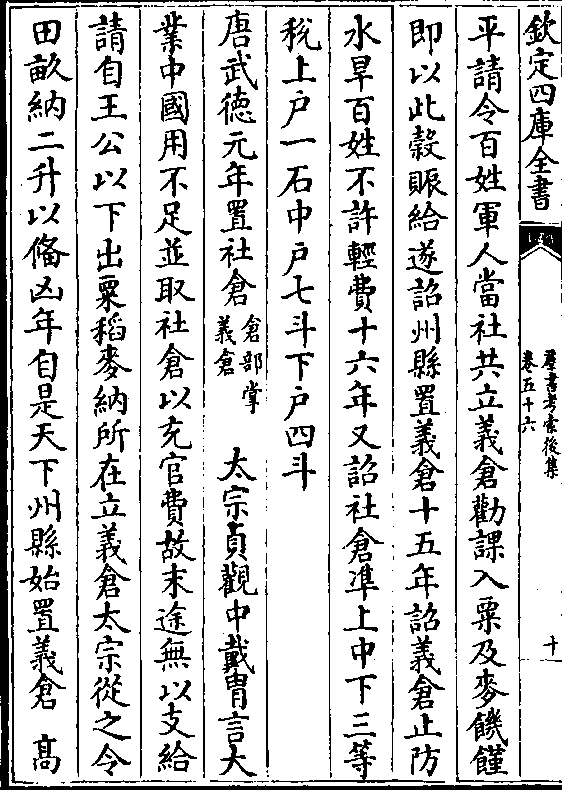 欽定四庫全書
羣書考索後集
卷五十六
十
平請令百姓軍人當社共立義倉勸課入粟及麥饑饉
即以此穀賑給遂詔州縣置義倉十五年詔義倉止防
水旱百姓不許輕費十六年又詔社倉凖上中下三等
稅上户一石中户七斗下户四斗
唐武德元年置社倉倉部掌義倉 太宗貞觀中戴胄言大
業中國用不足並取社倉以充官費故末途無以支給
請自王公以下出粟稻麥納所在立義倉太宗從之令
田畝納二升以備凶年自是天下州縣始置義倉 高